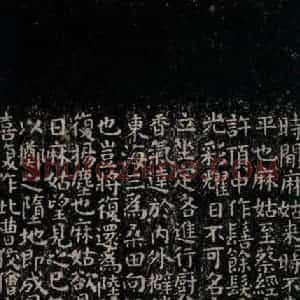 時聞麻姑來時不
平也麻姑至蔡經
許頂中作髻餘髮
光彩耀日不可名
立坐定各進行廚
香氣達於內外擗
東海三為桑田向
也豈將復還為陸
復揚塵也麻姑欲
日麻姑望見之已
以擲之墮地即成
喜復作此曹狡獪